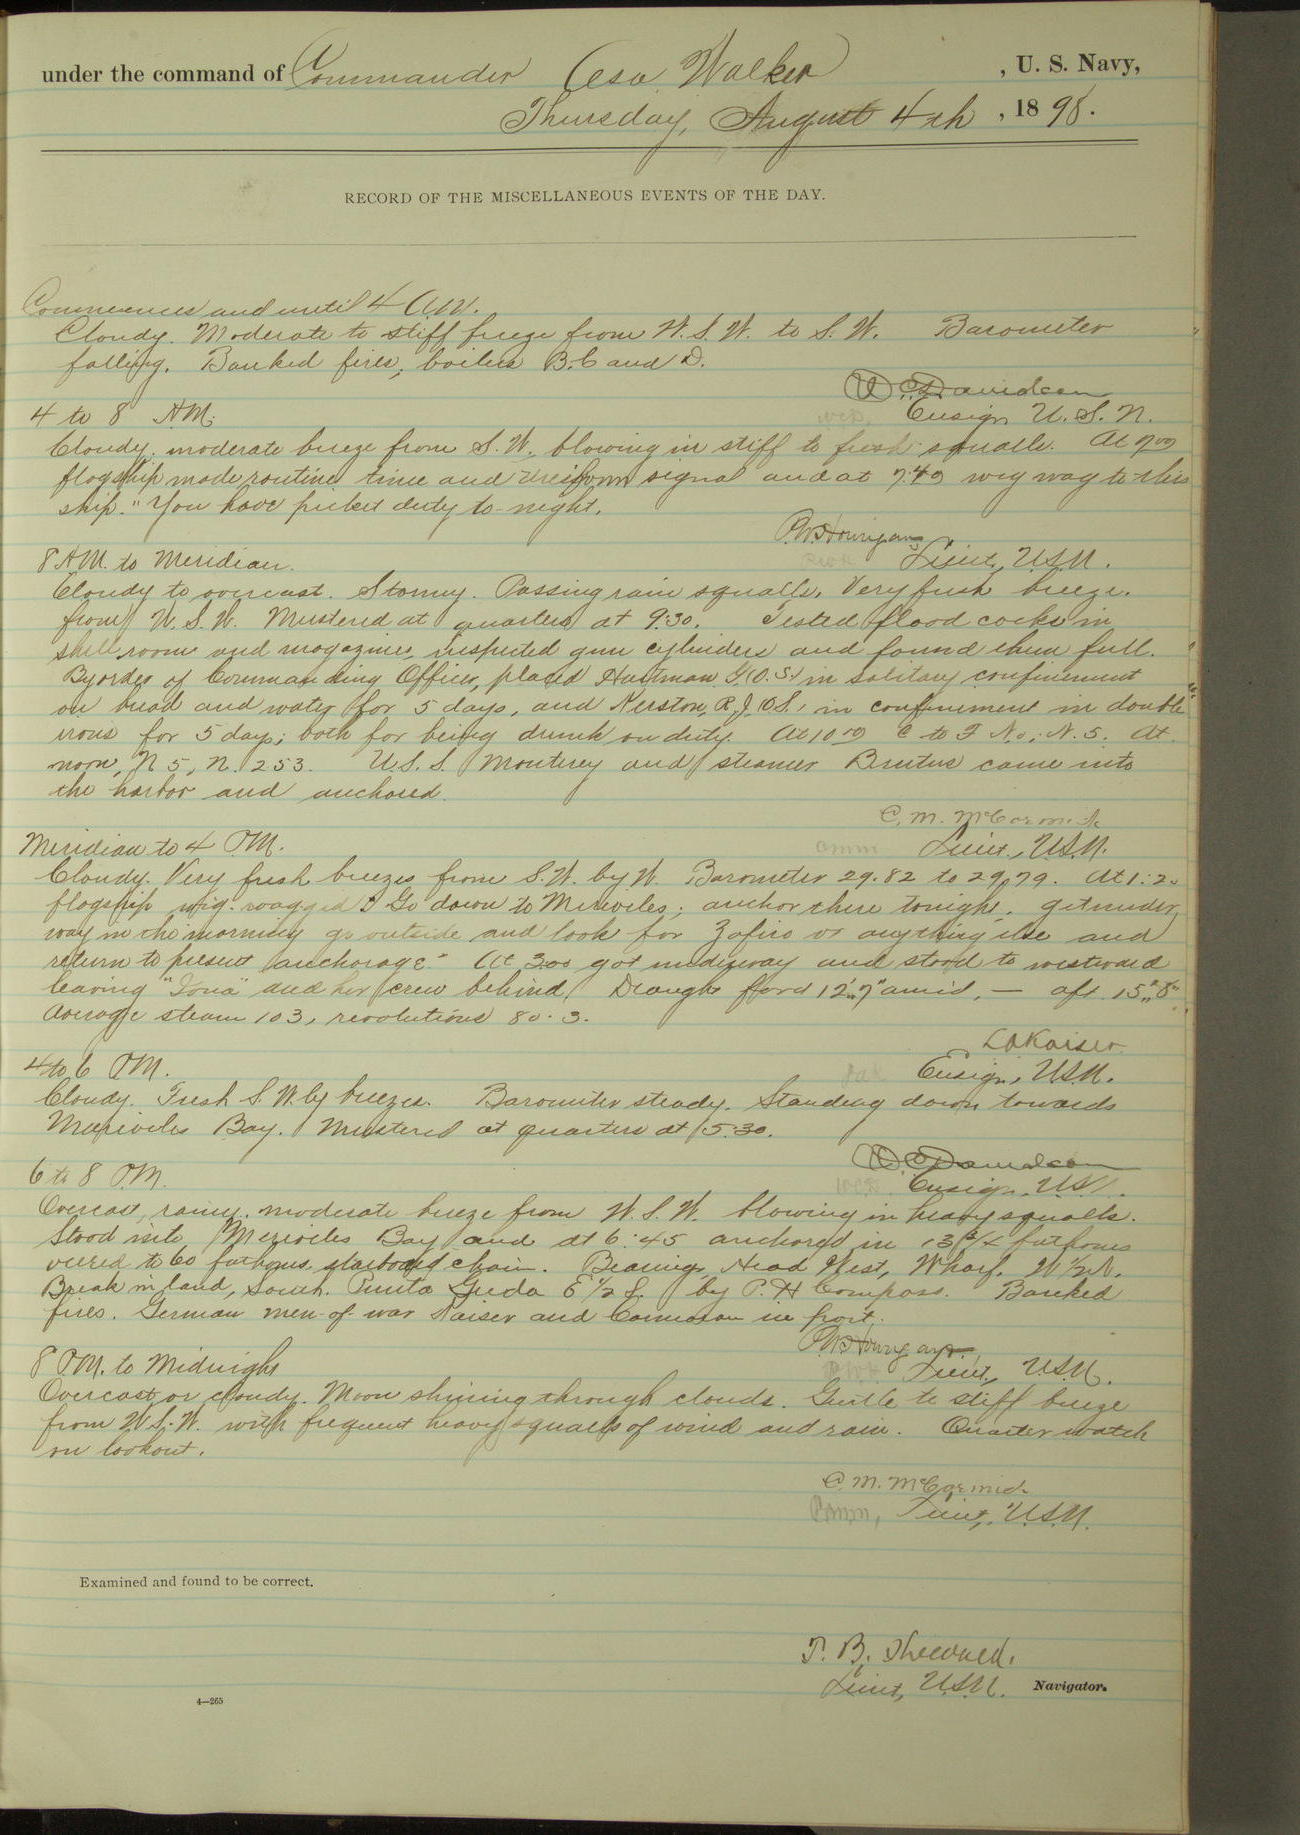 under the command of Commander Asa Walker, U. S. Navy,
Thursday, August 4th, 1898.
RECORD OF THE MISCELLANEOUS EVENTS OF THE DAY.
Commences and until 4 A.M.
Cloudy. Moderate to stiff breeze from W.S.W. to S.W. Barometer
falling. Banked fires, boilers B. C and D.
W C Davidson
Ensign U.S.N.
4 to 8 A.M.
Cloudy, moderate breeze from S.W., blowing in stiff to fresh squalls. At
flagship made routine time and uniform signal and at 7:40 wig wag to this
ship. "You have picket duty to-night.
P.W. Hourigan
Lieut, U.S.N.
8 A.M. to Meridian.
Cloudy to overcast. Stormy. Passing rain squalls. Very fresh breeze.
from W.S.W. Mustered at quarters at 9:30. Tested flood cocks in
shell rooms and magazines, inspected gun cylinders and found them full.
By order of Commanding Officer, placed (O.S.) in solitary confinement
on bread and water for 5 days, and R.J. (O.S.) in confinement in double
irons for 5 days; both for being drunk on duty. At 10 00 C to F No. N. 5. At
noon, N 5, N. 253. U.S.S. Monterey and steamer Brutus came into
the harbor and anchored.
C. M. McCormick
Lieut., U.S.N.
Meridian to 4 P.M.
Cloudy. Very fresh breezes from S.W. by W. Barometer 29.82 to 29.79. At 1:20
flagship wig-wagged "Go down to Meriveles; anchor there tonight, get under
way in the morning go outside and look for Zafiro or anything else and
return to present anchorage" At 3:00 got underway and stood to westward
leaving "Iona" and her crew behind. Draught for'd 12'.,7" amid, — aft 15'.,8".
Average steam 103, revolutions 80.3.
L A Kaiser
Ensign, U.S.N.
4 to 6 P.M.
Cloudy. Fresh S.W.ly breezes. Barometer steady. Standing down towards
Meriveles Bay. Mustered at quarters at 5:30.
W C Davidson
Ensign, U.S.N.
6 to 8 P.M.
Overcast, rainy, moderate breeze from W.S.W. blowing in heavy squalls.
Stood into Meriveles Bay and at 6:45 anchored in 13 3/4 fathoms
veered to 60 fathoms starboard chain. Bearings Head West, Wharf. W 1/2 N.
Break in land, South. Punta Gorda E 1/2 S. by P. H Compass. Banked
fires. German men-of-war Kaiser and Cormoran in port.
P.W. Hourigan
Lieut, U.S.N.
8 P.M. to Midnight
Overcast or cloudy. Moon shining through clouds. Gentle to stiff breeze
from W.S.W. with frequent heavy squalls of wind and rain. Quarter watch
on lookout.
C. M. McCormick
Lieut, U.S.N.
Examined and found to be correct.
Lieut, U.S.N. Navigator.
4—265